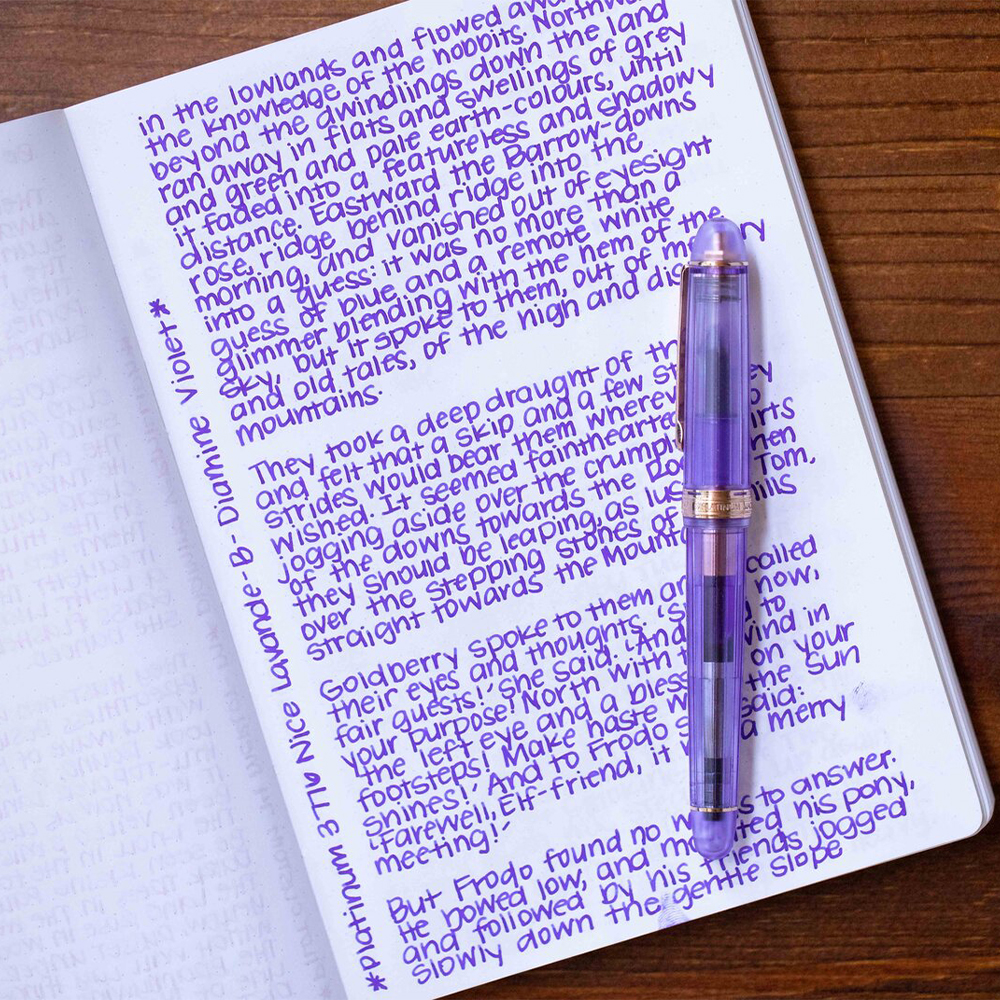 in the lowlands and flowed away
the knowledge of the hobbits. Northw
beyond the dwindlings down the land
ran away in flats and swellings of grey
and green and pale earth-colours, until
it faded into a featureless and shadowy
distance. Eastward the Barrow-downs
rose, ridge behind ridge into the
morning, and vanished out of eyesight
into a guess: it was no more than a
guess of blue and a remote white
glimmer blending with the hem of the
sky, but it spoke to them, out of m ry
and old tales, of the high and dis
mountains.
They took a deep draught of th
and felt that a skip and a few st
strides would bear them wherev ey
wished. It seemed fainthearte
jogging aside over the crumpl irts
of the downs towards the Ro hen
they should be leaping, as lus Tom,
over the stepping stones of ills
straight towards the Mounta
Goldberry spoke to them an called
their eyes and thoughts. 'Sp now,
fair guests!' she said. 'And to
your purpose! North with t wind in
the left eye and a bless on your
footsteps! Make haste w the Sun
shines!' And to Frodo s said:
'Farewell, Elf-friend, it w a merry
meeting!'
But Frodo found no w s to answer.
He bowed low, and mo ted his pony,
and followed by his friends jogged
slowly down the gentle slope
*Platinum 3776 Nice Lavande-B- Diamine Violet*
PLATINUM